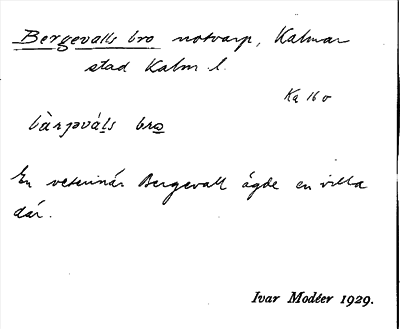 Bergevalls bro notvarp, Kalmar
stad Kalm l.
Ka 16 o
bàrjəvá̱ls bro̱
En veterinär Bergevall ägde en villa
där.
Ivar Modéer 1929.